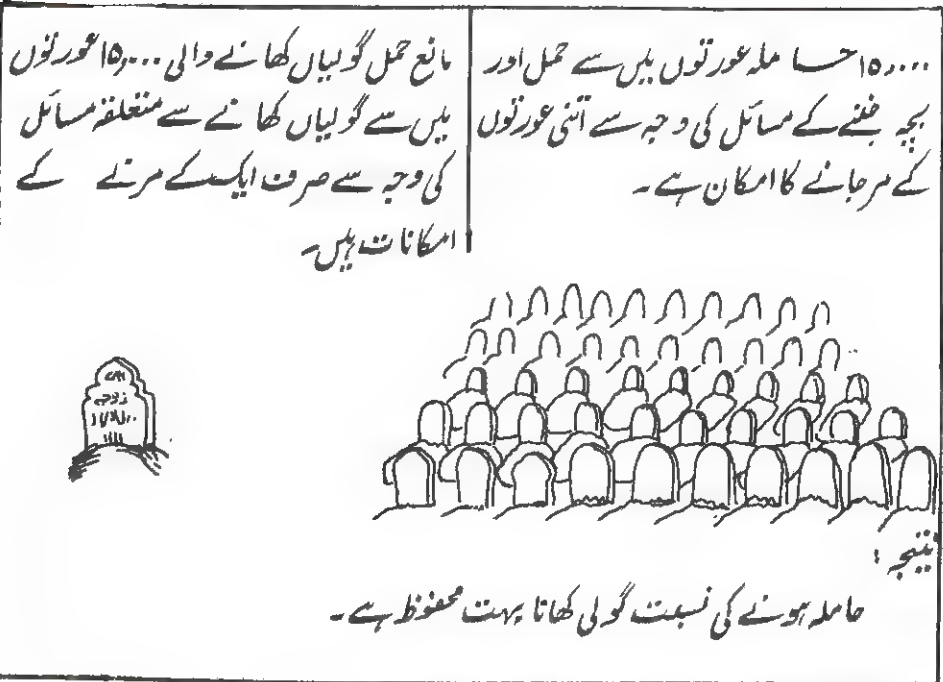 ۱۵,۰۰۰ حاملہ عورتوں میں سے حمل اور
بچہ جننے کے مسائل کی وجہ سے اتنی عورتوں
کے مر جانے کا امکان ہے۔
مانع حمل گولیاں کھانے والی ۱۵,۰۰۰ عورتوں
میں سے گولیاں کھانے سے متعلقہ مسائل
کی وجہ سے صرف ایک کے مرنے کے
امکانات ہیں۔
زوجہ
نتیجہ :
حاملہ ہونے کی نسبت گولی کھانا بہت محفوظ ہے۔